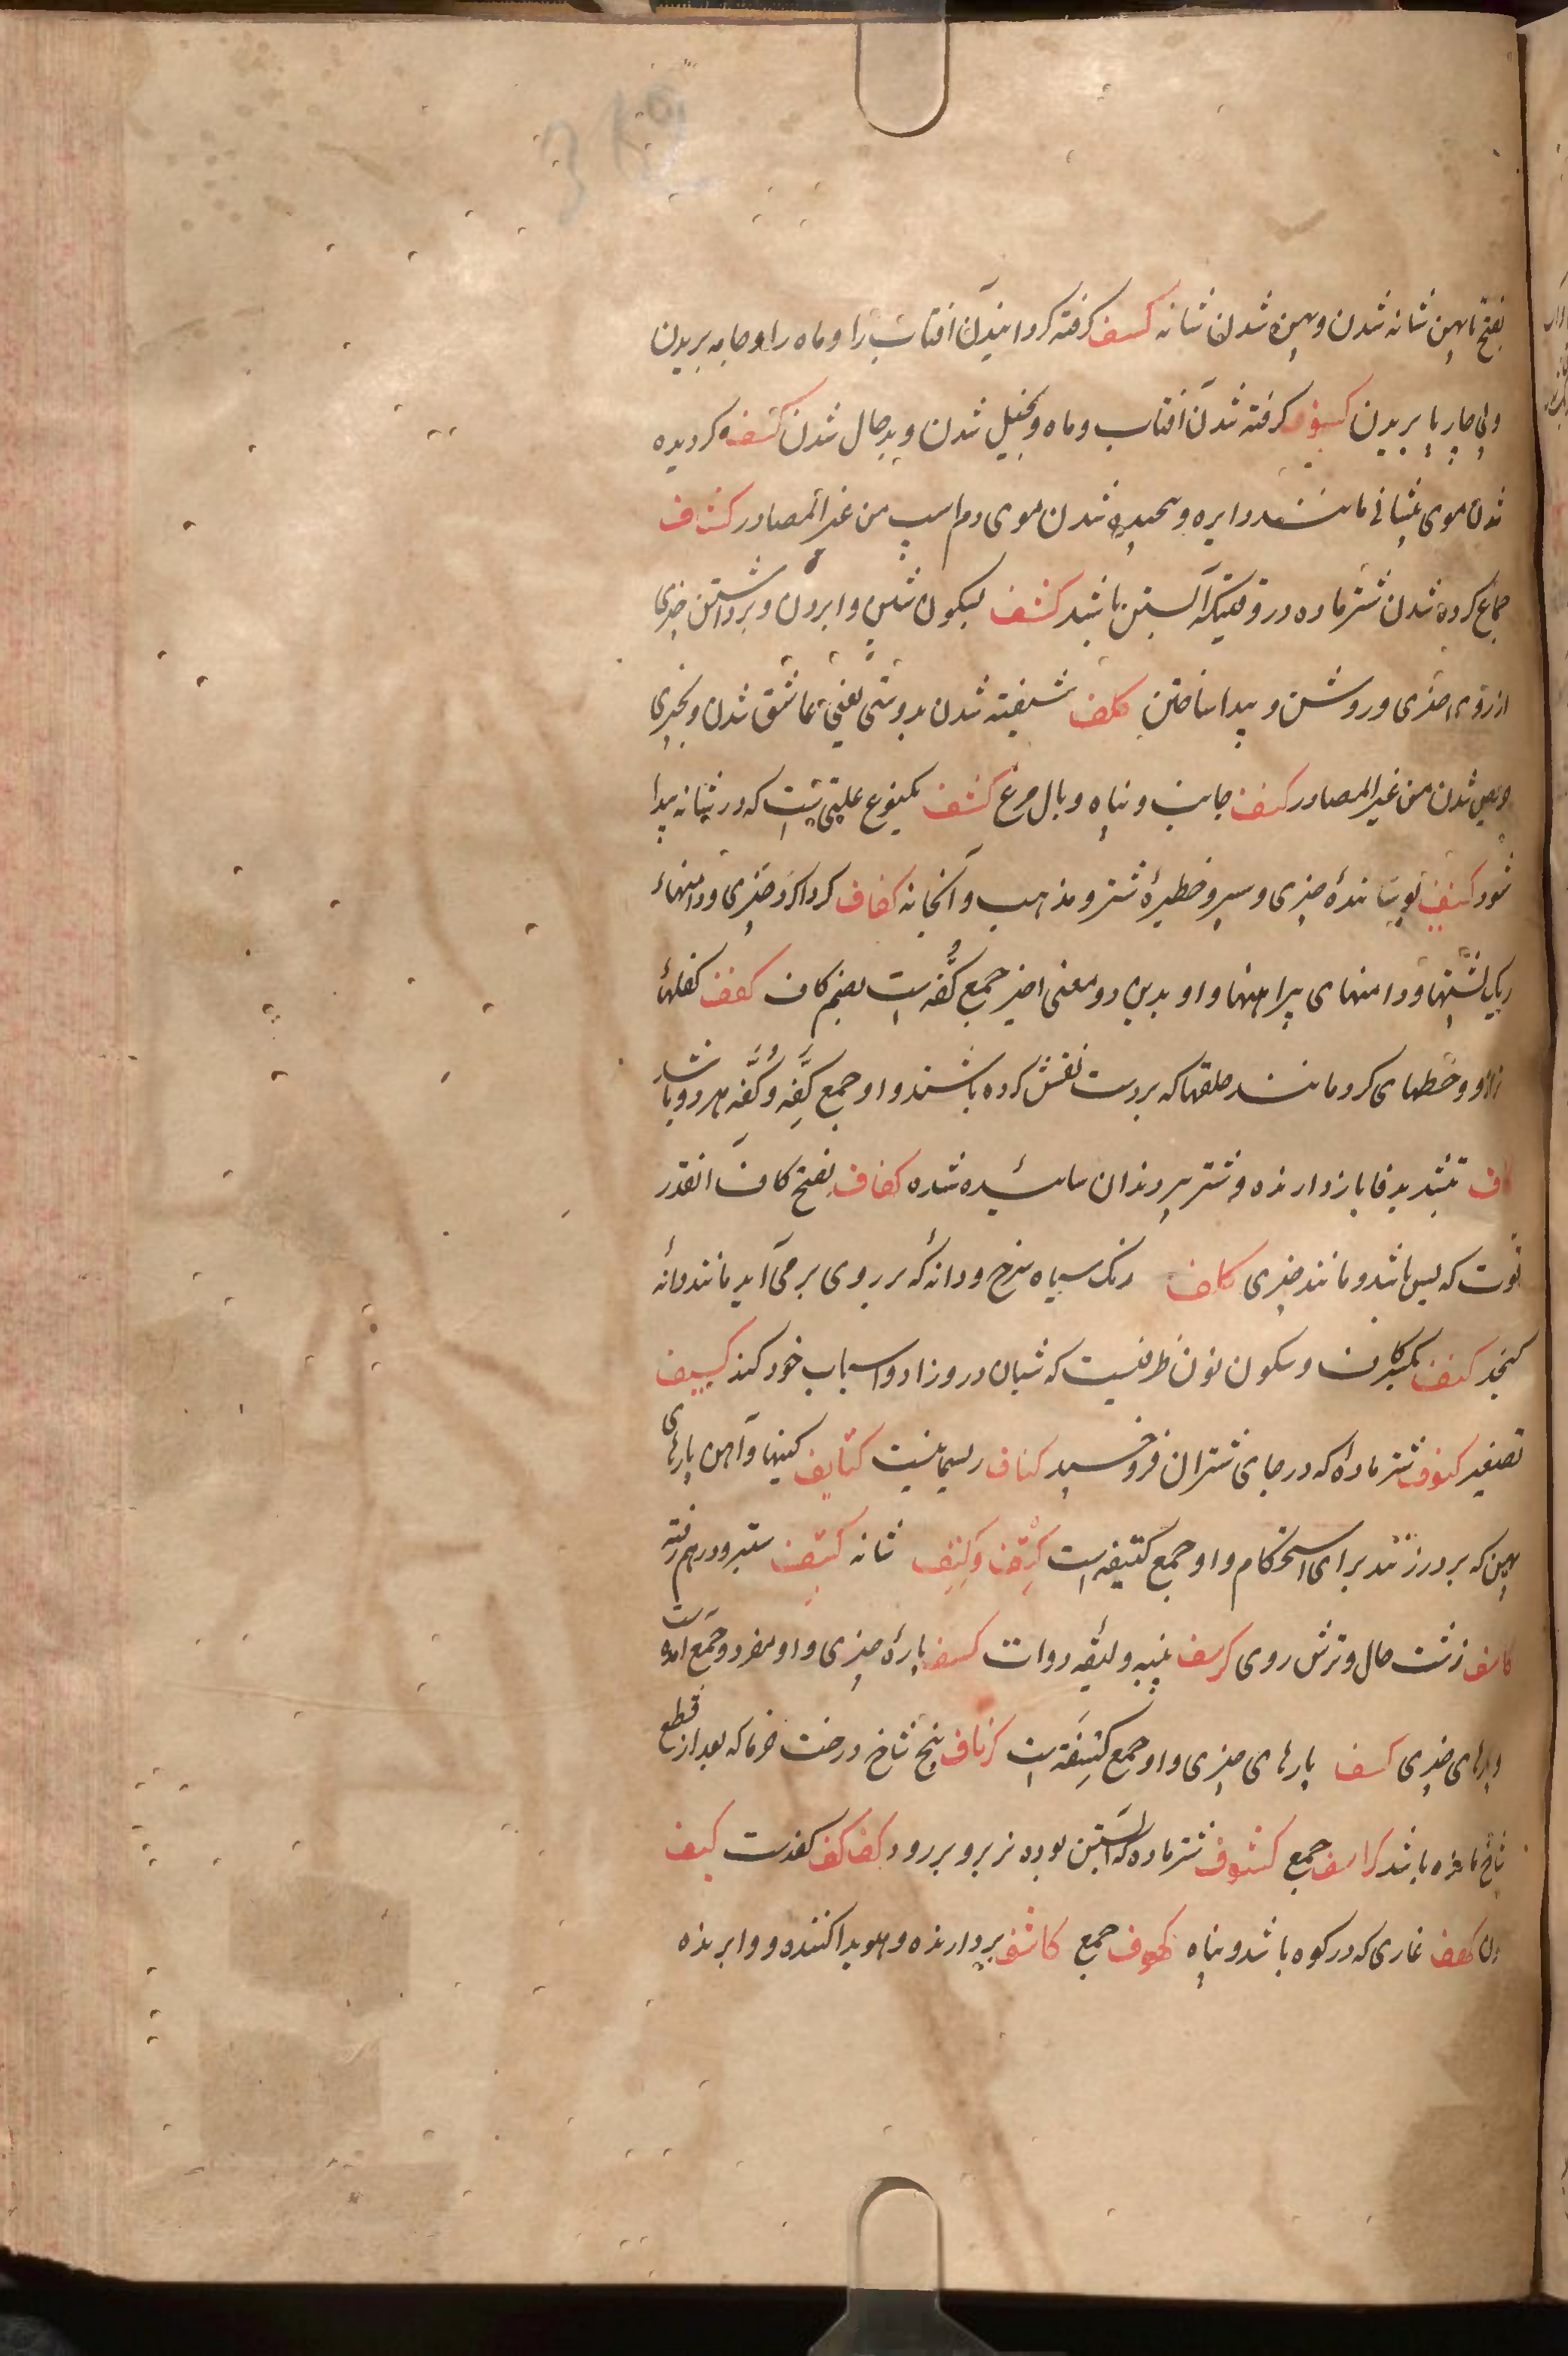 بفتح تا پهن شانه شدن و پهن شدن شانه کسف گرفته گردانیدن آفتاب را و ماه را و جامه بریدن
و پی چارپا بریدن کسوف گرفته شدن آفتاب و ماه و بخیل شدن و بدحال شدن کشف گردیده
شدن موی پیشانی مانند دایره و پیچیده شدن موی دم اسپ من غیر المصادر کشاف
جماع کرده شدن شتر ماده در وقتیکه آبستن باشد کشف بسکون شین وابردن و برداشتن چیزی
از روی چیزی و روشن و پیدا ساختن کلف شیفته شدن بدوستی یعنی عاشق شدن و بچیزی
حریص شدن من غیر المصادر کنف جانب و پناه و بال مرغ کتف یکنوع علتی است که در شانه پیدا
شود کنیف پوشاننده چیزی و سپر و خطیرهٔ شتر و مذهب و آبخانه کفاف گرداگرد چیزی و دامنهاء
ریک پشتها و دامنهای پیراهنها و او بدین دو معنی اخیر جمع کُفّه است بضم کاف کفف کفلهاء
ترازو و خطهای گرد مانند حلقها که بر دست نقش کرده باشند و او جمع کِفّه و کُفّه هر دو باشد
کاف بتشدید فا بازدارنده و شتر پیر دندان سائیده شده کفاف بفتح کاف آنقدر
قوت که بس باشد و مانند چیزی کلف رنک سیاه سرخ و دانه که بر روی برمی آید مانند دانه
کنجد کنف بکسر کاف و سکون نون ظرفیست که شبان در و زاد و اسباب خود کند کنیف
تصغیر کنوف شتر ماده که در جای شتران فروخسپد کتاف ریسمانیست کتایف کینها و آهن پارهای
پهن که بر در زنند برای استحکام و او جمع کتیفه است کَتِف و کِتف شانه کثیف ستبر و درهم رفته
کاسف زشت حال و ترش روی کرسف پنبه و لیقه دوات کسف پارهٔ چیزی و او مفرد و جمع آمده است
و پارهای چیزی کسف پارهای چیزی و او جمع کِسفَة است کرناف بیخ شاخ درخت خرما که بعد از قطع
شاخ مانده باشد کرانیف جمع کشوف شتر ماده که آبستن بوده نر برو بررود کف کف کف دست کیف
کهف غاری که در کوه باشد و پناه کهوف جمع کاشف بردارنده و هویدا کننده و وابرنده